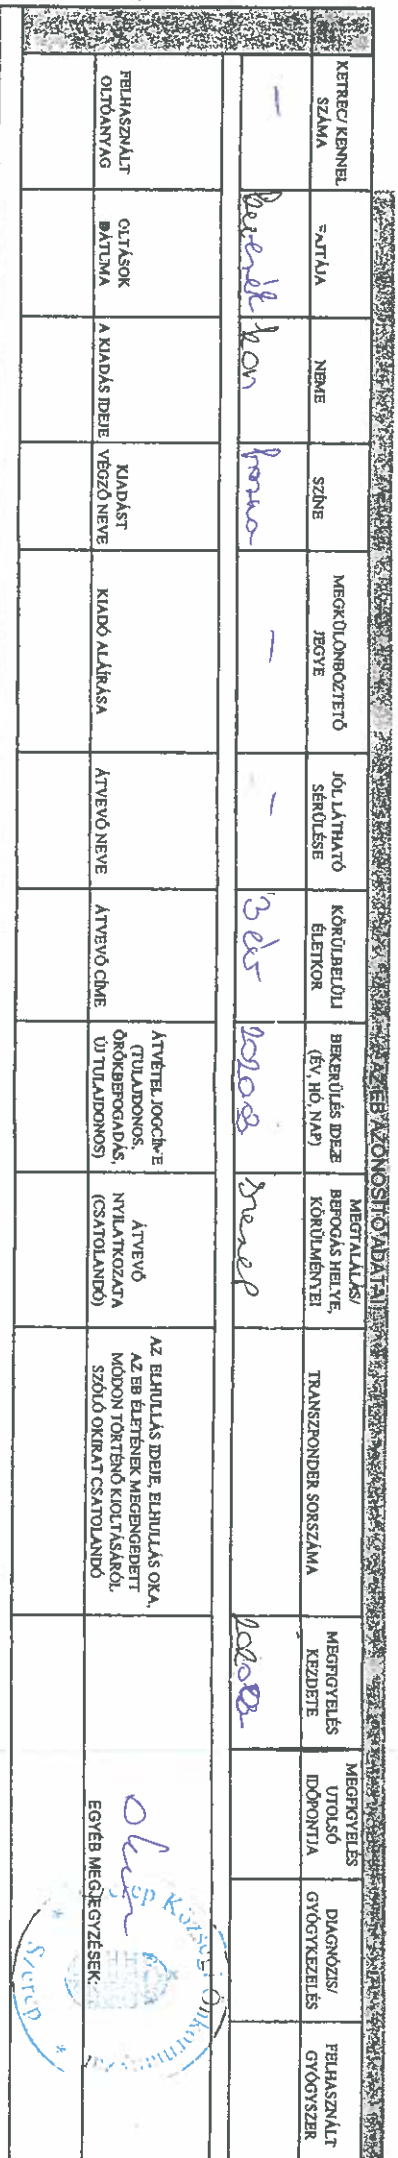 AZ EB AZONOSÍTÓ ADATAI
KETREC/ KENNEL SZÁMA
FAJTÁJA
NEME
SZÍNE
MEGKÜLÖNBÖZTETŐ JEGYE
JÓL LÁTHATÓ SÉRÜLÉSE
KÖRÜLBELÜLI ÉLETKOR
BEKERÜLÉS IDEJE (ÉV, HÓ, NAP)
MEGTALÁLÁS/ BEFOGÁS HELYE, KÖRÜLMÉNYEI
TRANSZPONDER SORSZÁMA
MEGFIGYELÉS KEZDETE
MEGFIGYELÉS UTOLSÓ IDŐPONTJA
DIAGNÓZIS/ GYÓGYKEZELÉS
FELHASZNÁLT GYÓGYSZER
–
keverék
kan
–
–
3 év
202008
Szerep
FELHASZNÁLT OLTÓANYAG
OLTÁSOK DÁTUMA
A KIADÁS IDEJE
KIADÁST VÉGZŐ NEVE
KIADÓ ALÁÍRÁSA
ÁTVEVŐ NEVE
ÁTVEVŐ CÍME
ÁTVÉTEL JOGCÍME (TULAJDONOS, ÖRÖKBEFOGADÁS, ÚJ TULAJDONOS)
ÁTVEVŐ NYILATKOZATA (CSATOLANDÓ)
AZ ELHULLÁS IDEJE, ELHULLÁS OKA, AZ EB ÉLETÉNEK MEGENGEDETT MÓDON TÖRTÉNŐ KIOLTÁSÁRÓL SZÓLÓ OKIRAT CSATOLANDÓ
EGYÉB MEGJEGYZÉSEK:
Szerep *